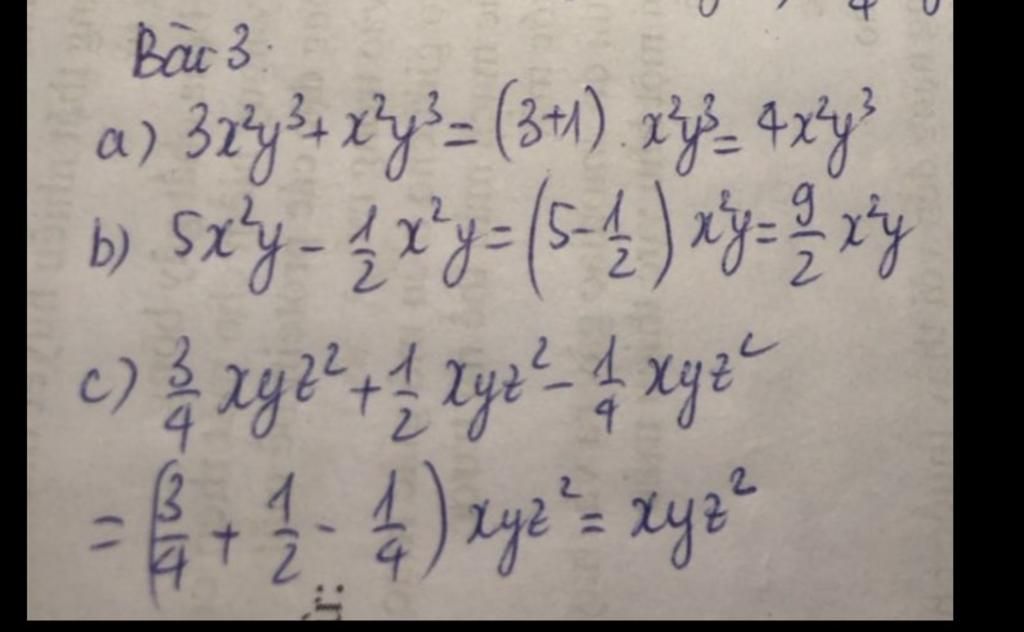 Bài 3:
a) 3x²y³ + x²y³ = (3+1). x²y³ = 4x²y³
b) 5x²y - 1/2 x²y = (5 - 1/2) x²y = 9/2 x²y
c) 3/4 xyz² + 1/2 xyz² - 1/4 xyz²
= (3/4 + 1/2 - 1/4) xyz² = xyz²